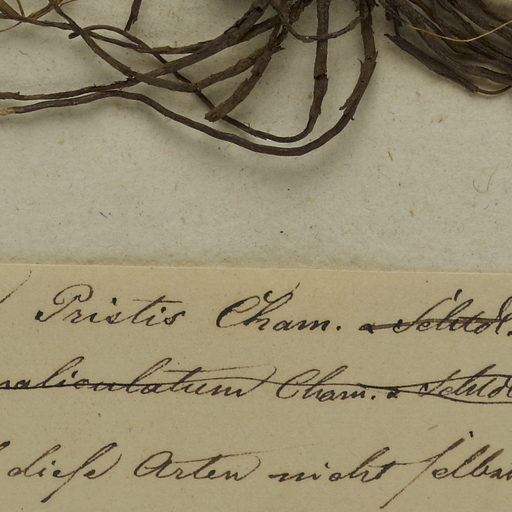 Pristis Cham. & Schtdl.
canaliculatum Cham. & Schtdl
diese Arten nicht selbst